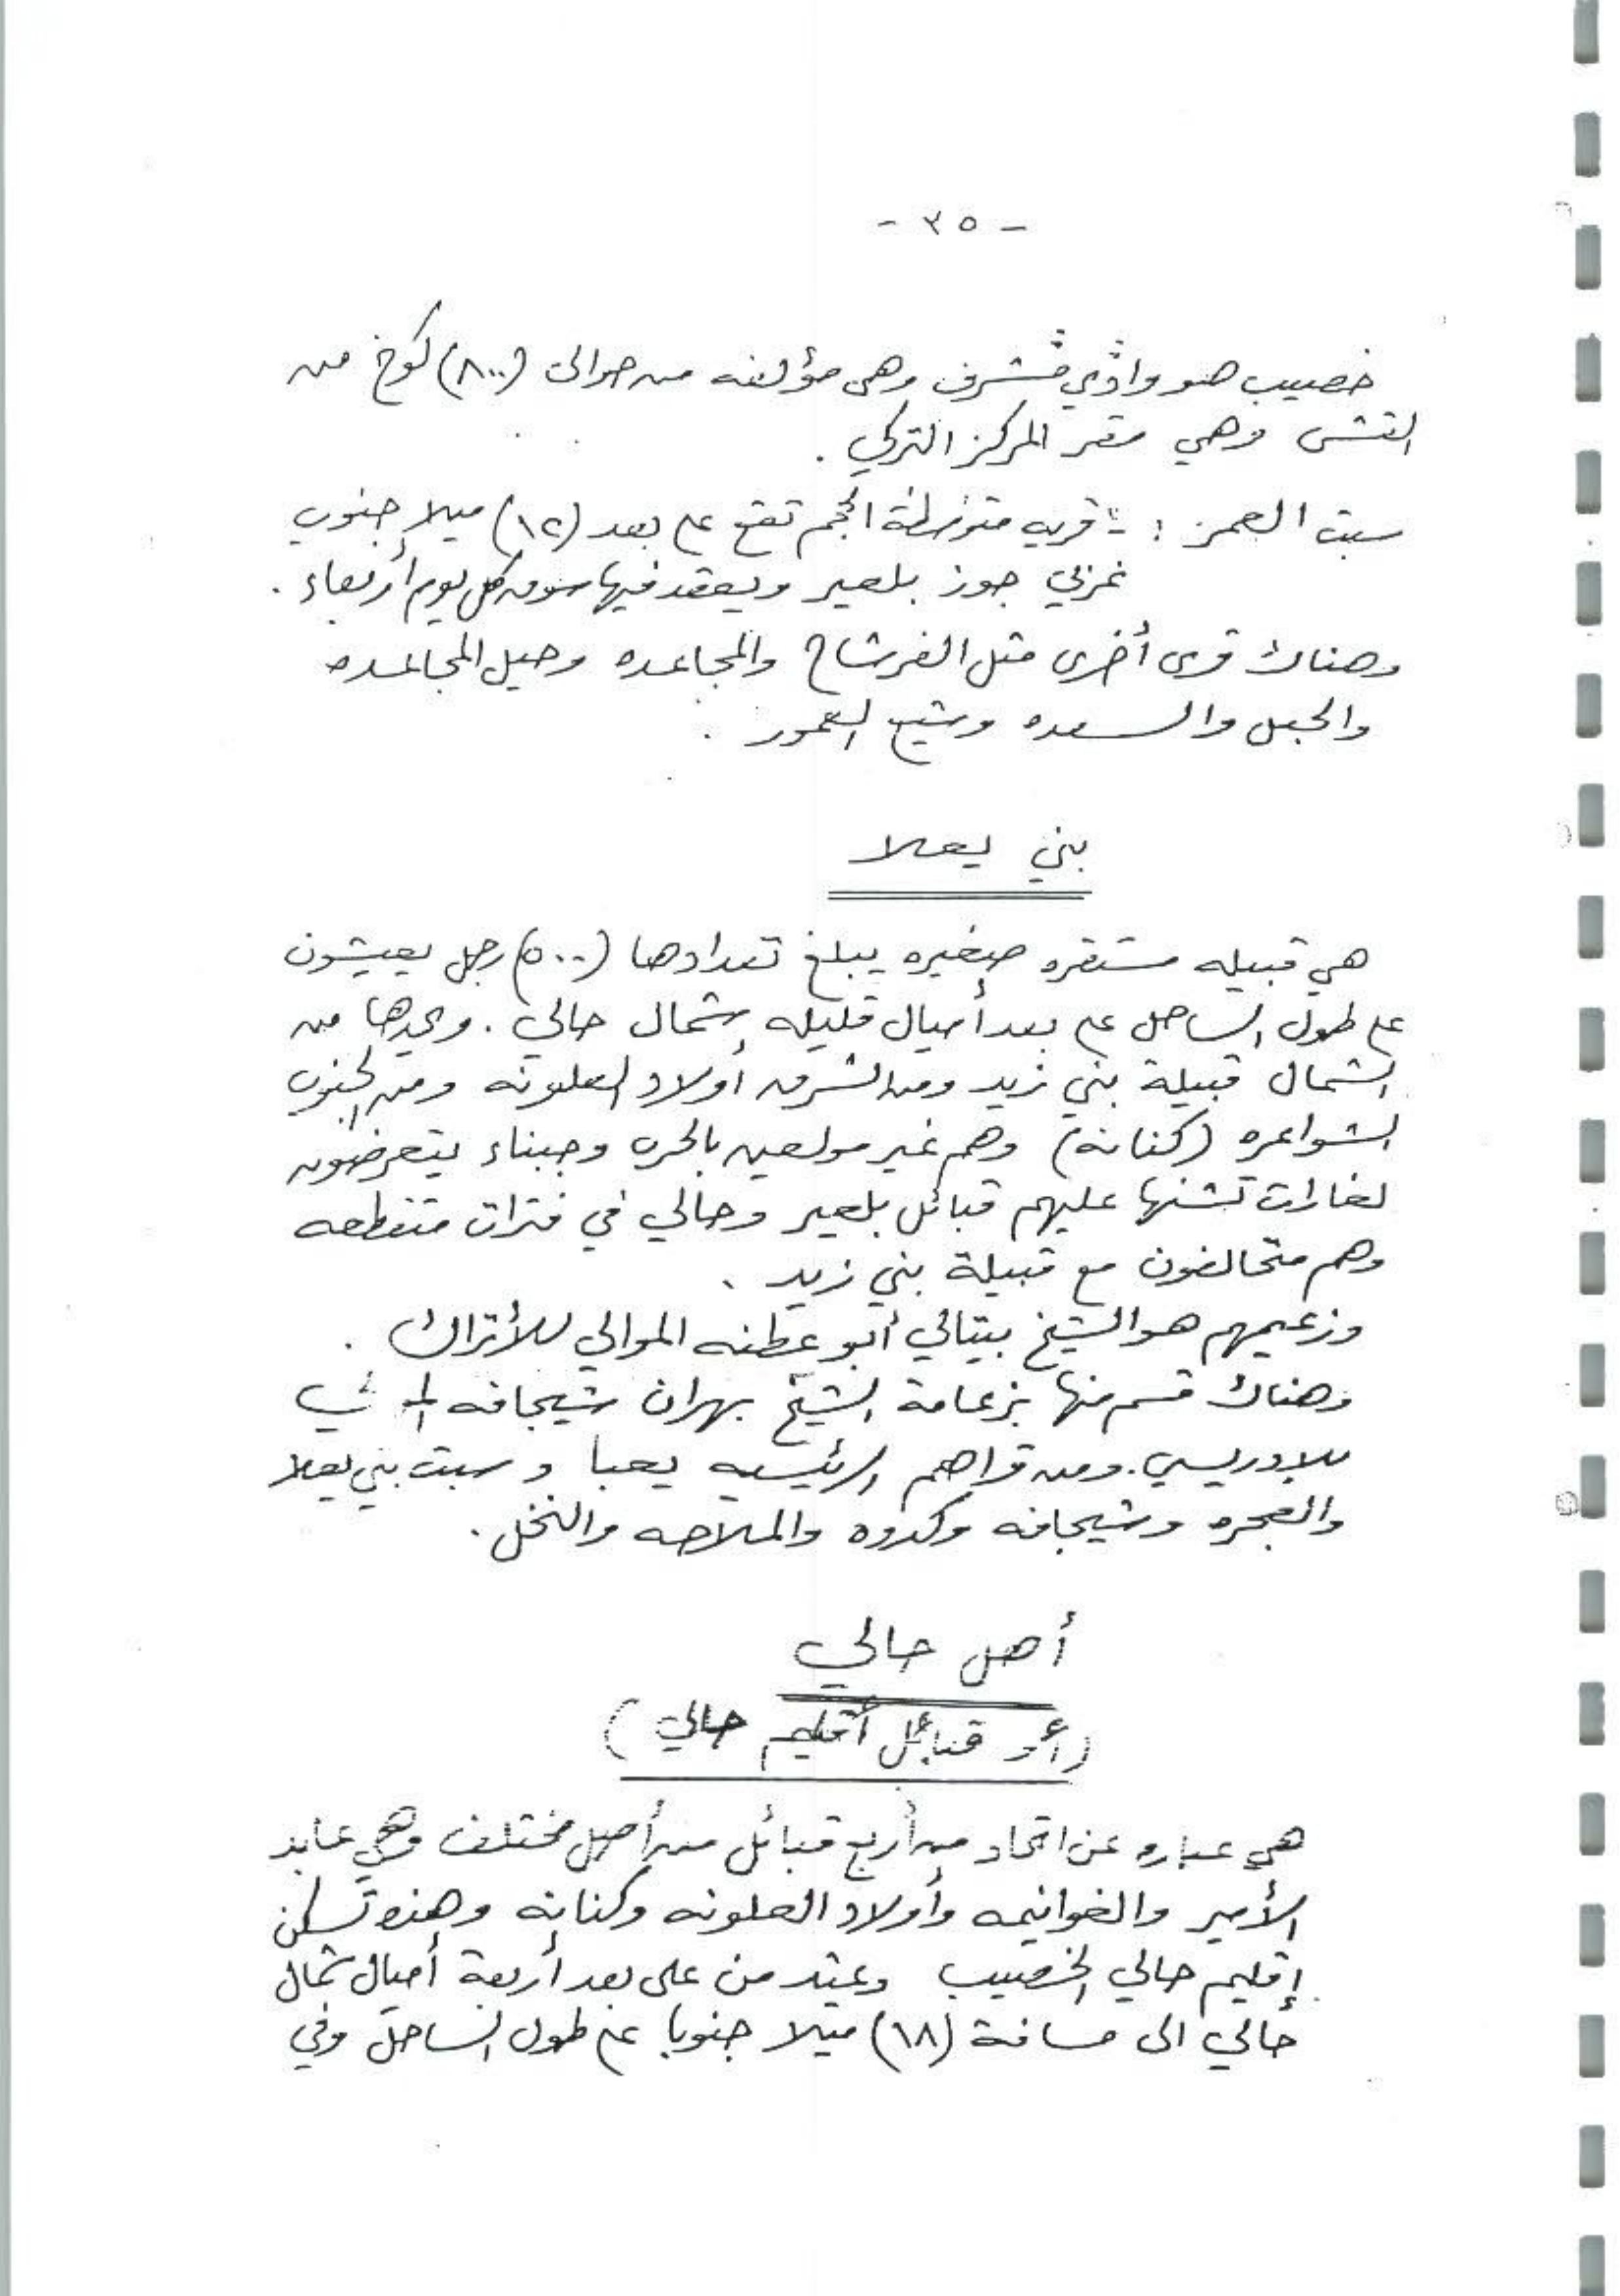 - ٣٥ -
خصيب هو وادي قشرف وهي مؤلفه من حوالى (٨٠٠) كوخ من
القش وهي مقر المركز التركي .
سبت العمر : - قريه متوسطة الحجم تقع على بعد (١٢) ميلا جنوب
غربي جوز بلعير ويعقد فيها سوق كل يوم أربعاء .
وهناك قرى أخرى مثل الفرشاح والمجاعده وحيل المجالده
والجبل والسعده وشيع العمور .
بني يعلا
هي قبيله مستقره صغيره يبلغ تعدادها (٥٠٠) رجل يعيشون
على طول الساحل على بعد أميال قليله شمال حالي . ويحدها من
الشمال قبيلة بني زيد ومن الشرق أولاد العلونه ومن الجنوب
الشواعره (كنانة) وهم غير مولعين بالحرب وجبناء يتعرضون
لغارات تشنها عليهم قبائل بلعير وحالي في فترات متقطعه
وهم متحالفون مع قبيلة بني زيد .
وزعيمهم هو الشيخ بيتالي أبو عطنه الموالي للأتراك .
وهناك قسم منها بزعامة الشيخ بهران شيجافه
للادريسي . ومن قراهم الرئيسيه يعبا و سبت بني يعلا
والعجره وشيجافه وكدوه والملاحه والنخل .
أهل حالي
(أو قبائل أقليم حالي)
هي عباره عن اتحاد من أربع قبائل من أصل مختلف وهي عابد
الأمير والغوانيمه وأولاد العلونه وكنانه وهذه تسكن
إقليم حالي الخصيب ويمتد من على بعد أربعة أميال شمال
حالي الى مسافة (١٨) ميلا جنوبا على طول الساحل وفي